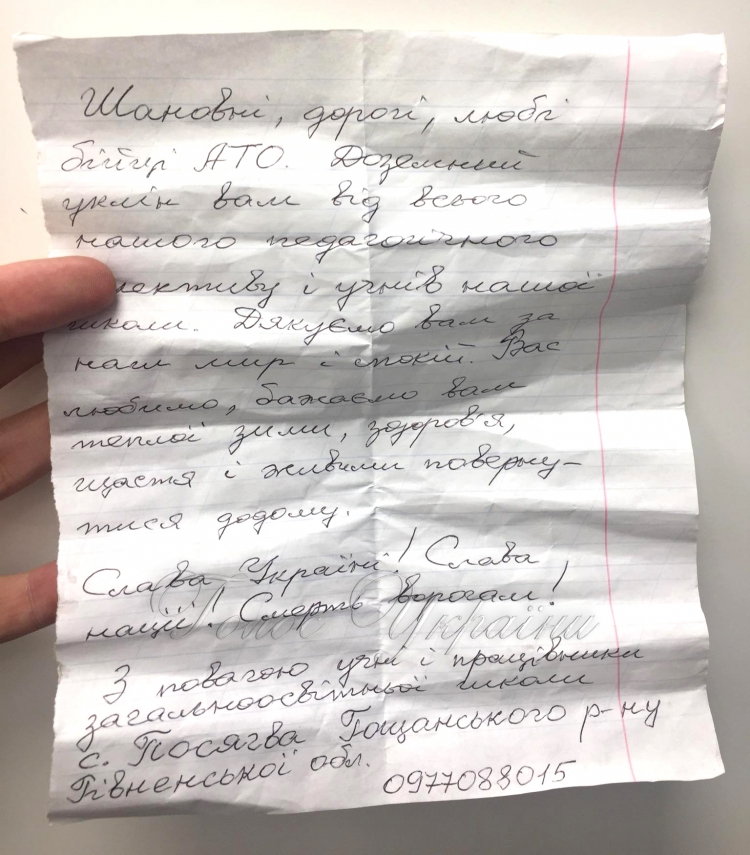 Шановні, дорогі, любі
бійці АТО. Доземний
уклін вам від всього
нашого педагогічного
лективу і учнів нашої
школи. Дякуємо вам за
наш мир і спокій. Вас
любимо, бажаємо вам
теплої зими, здоров'я,
щастя і живими поверну-
тися додому.
Слава Україні! Слава
нації! Смерть ворогам!
Голос України
З повагою учні і працівники
загальноосвітньої школи
с. Посягва Гощанського р-ну
Рівненської обл.
0977088015